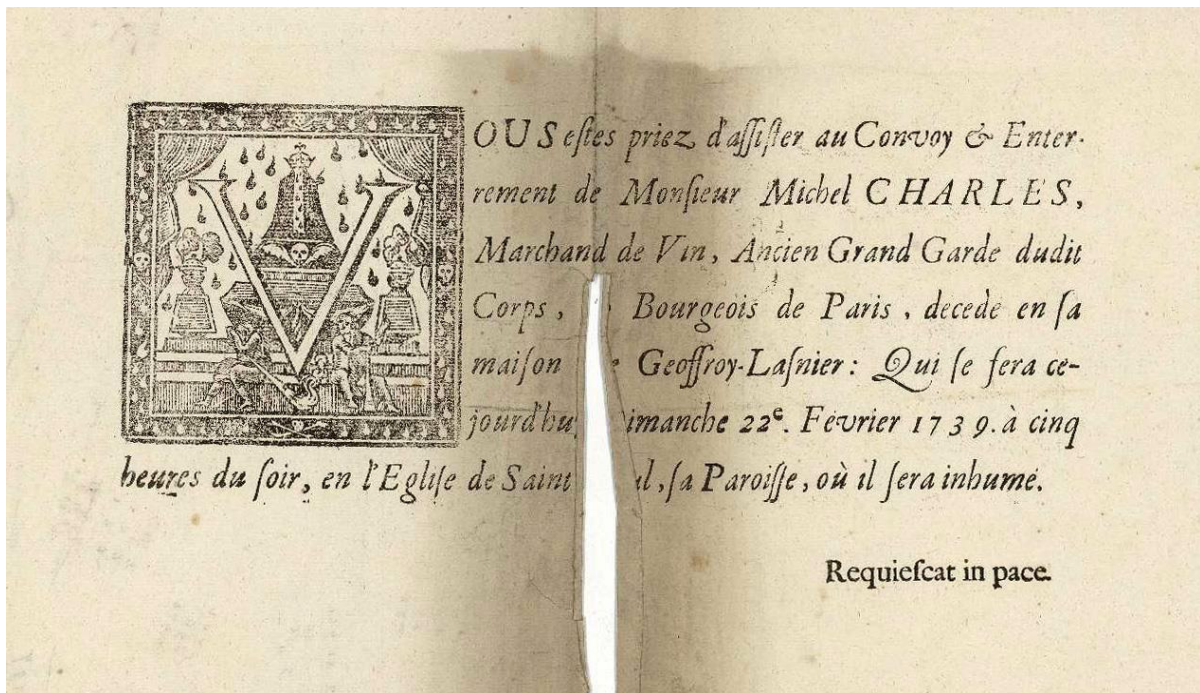 VOUS eſtes priez d'aſſiſter au Convoy & Enter-
rement de Monſieur Michel CHARLES,
Marchand de Vin, Ancien Grand Garde dudit
Corps, Bourgeois de Paris, decede en ſa
maiſon Geoffroy-Laſnier: Qui ſe fera ce-
jourd'hu imanche 22e. Février 1739. à cinq
heures du ſoir, en l'Egliſe de Saint ul, ſa Paroiſſe, où il ſera inhumé.
Requieſcat in pace.